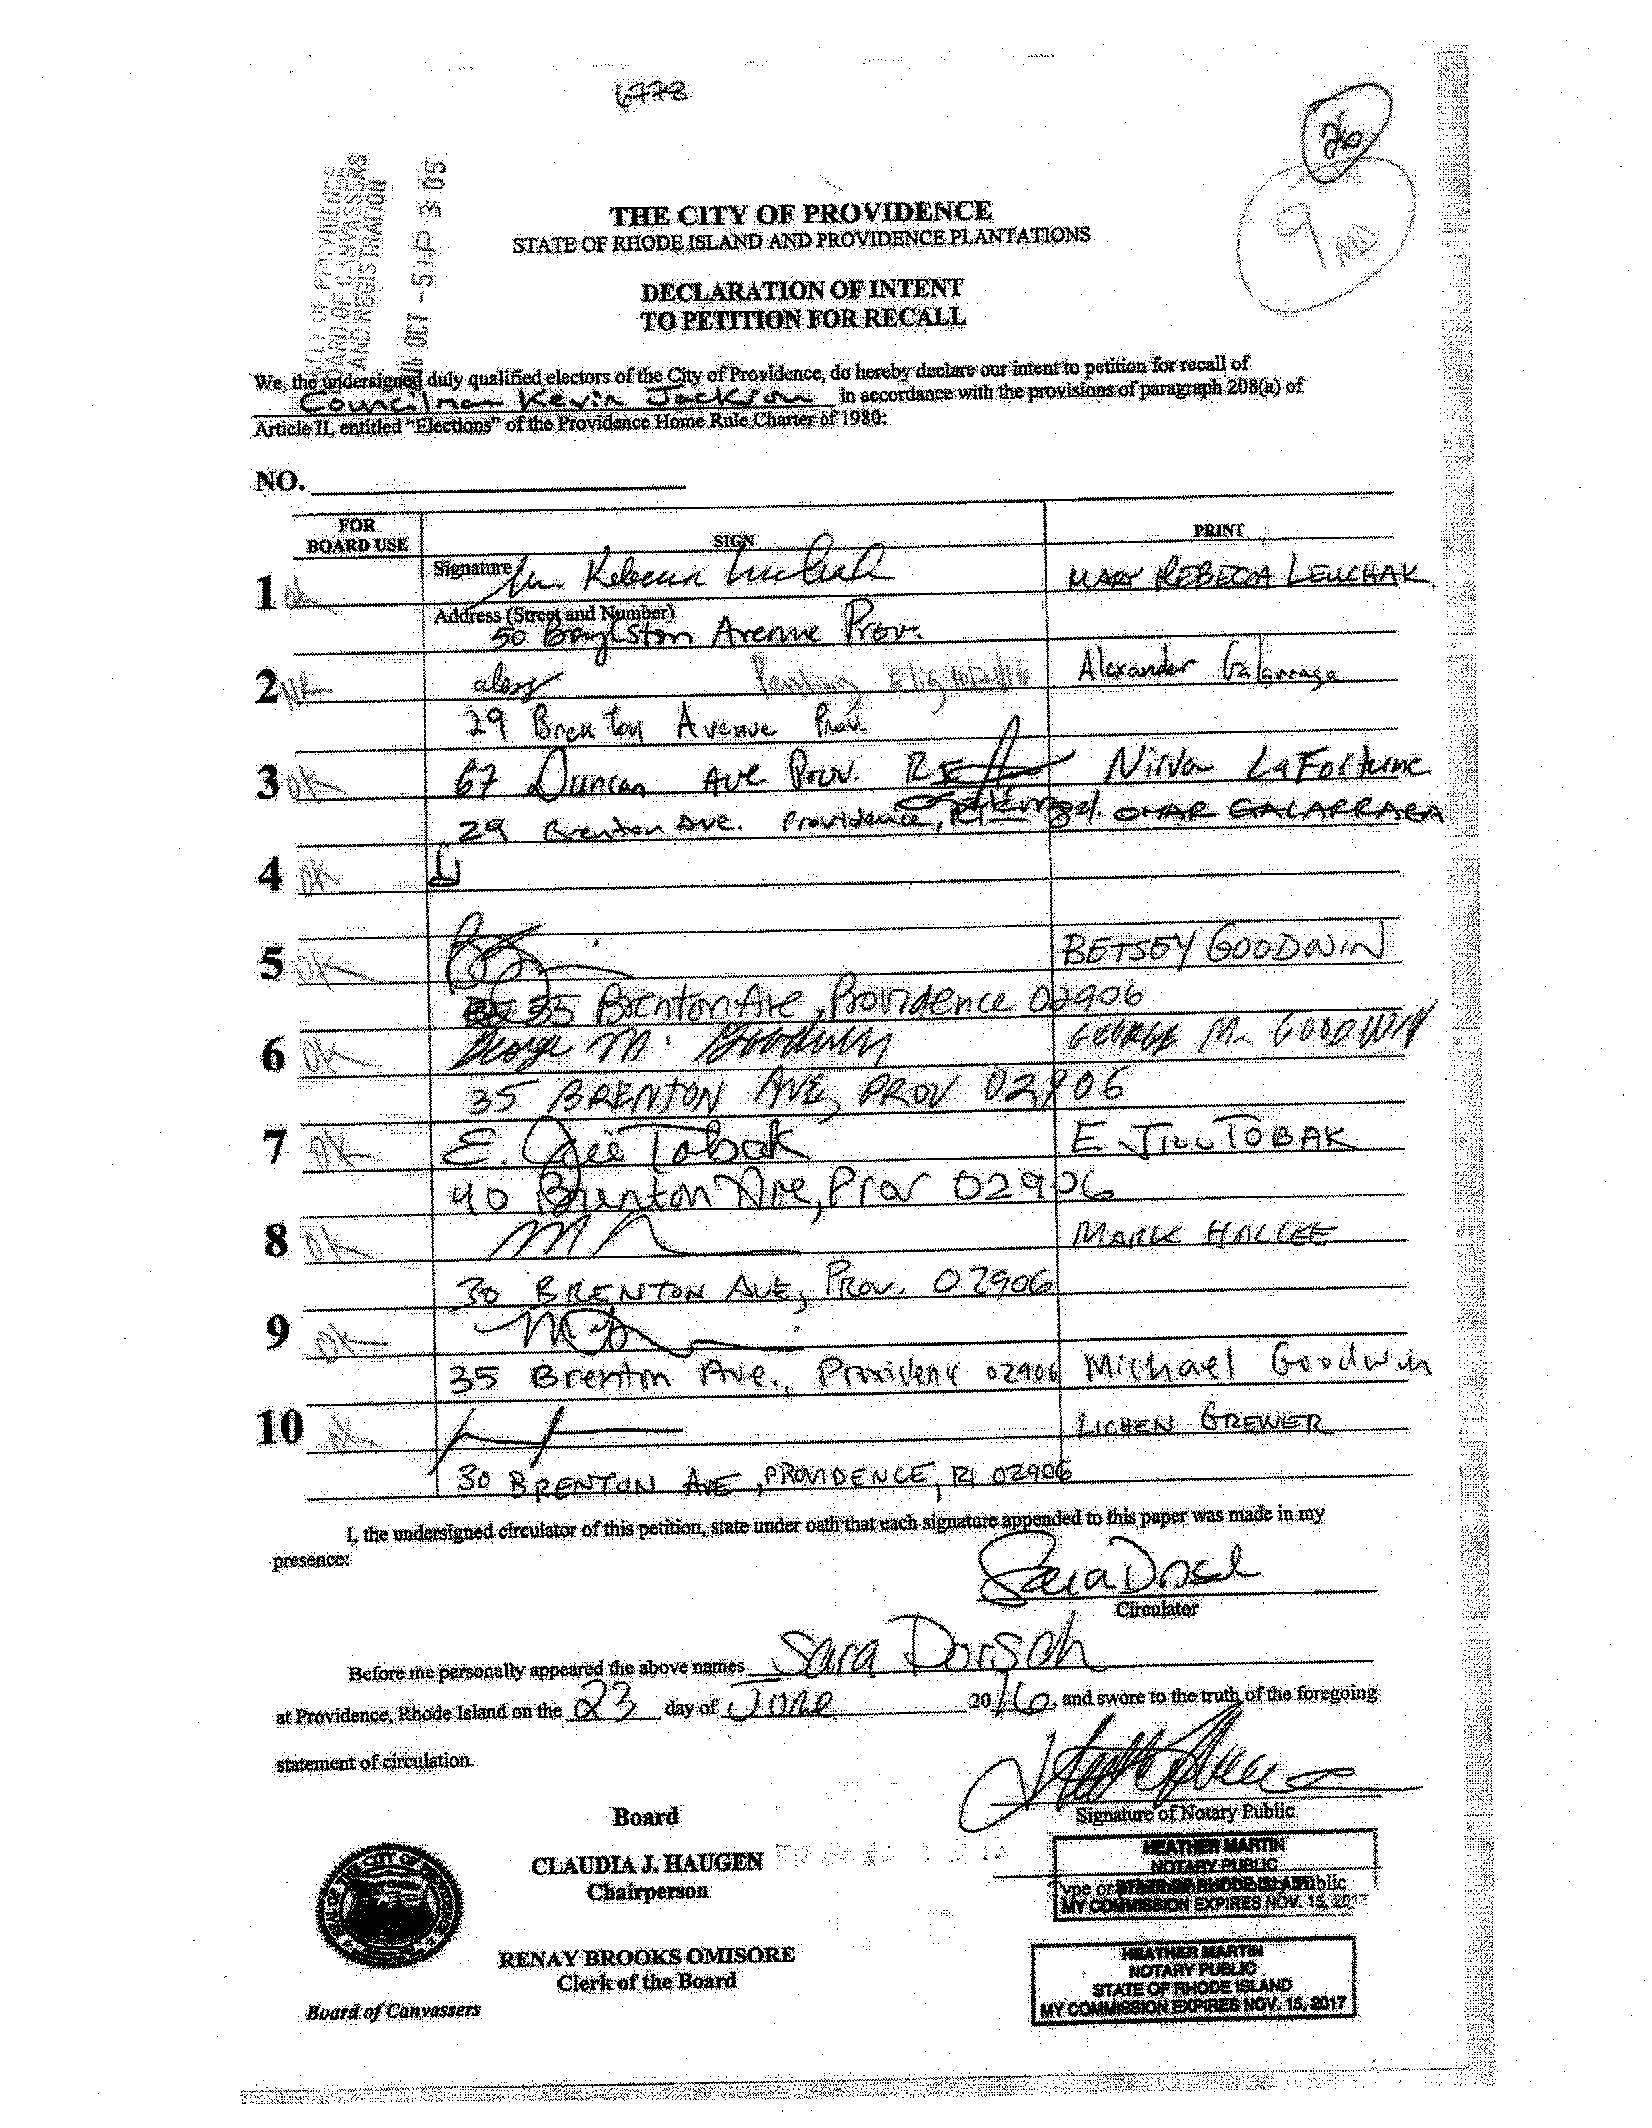 6772
20
9
CITY OF PROVIDENCE
BOARD OF CANVASSERS
AND REGISTRATION
OCT -5 P 3:05
THE CITY OF PROVIDENCE
STATE OF RHODE ISLAND AND PROVIDENCE PLANTATIONS
DECLARATION OF INTENT
TO PETITION FOR RECALL
We, the undersigned duly qualified electors of the City of Providence, do hereby declare our intent to petition for recall of
Councilman Kevin Jackson in accordance with the provisions of paragraph 208(a) of
Article II, entitled "Elections" of the Providence Home Rule Charter of 1980:
NO.
FOR BOARD USE SIGN PRINT
1 Signature MARY REBECCA LEUCHAK
Address (Street and Number)
50 Boylston Avenue Prov.
2 alex Pending Eligibility Alexander Galarraga
29 Brenton Avenue Prov.
3 OK 67 Duncan Ave Prov. RI Nirva LaFortune
29 Brenton Ave. Providence, RI OMAR GALARRAGA
4 OK
5 OK BETSEY GOODWIN
35 Brenton Ave, Providence 02906
6 OK George M. Goodwin GEORGE M. GOODWIN
35 BRENTON AVE, PROV 02906
7 OK E. Jill Tobak E. JILL TOBAK
40 Brenton Ave, Prov 02906
8 OK MARK HALLEE
30 BRENTON AVE, PROV. 02906
9 OK
35 Brenton Ave., Providence 02906 Michael Goodwin
10 LICHEN GREWER
30 BRENTON AVE, PROVIDENCE, RI 02906
I, the undersigned circulator of this petition, state under oath that each signature appended to this paper was made in my
presence:
Sara Dorsch
Circulator
Before me personally appeared the above names Sara Dorsch
at Providence, Rhode Island on the 23 day of June 2016, and swore to the truth of the foregoing
statement of circulation.
Signature of Notary Public
Board
CLAUDIA J. HAUGEN
Chairperson
HEATHER MARTIN
NOTARY PUBLIC
STATE OF RHODE ISLAND
MY COMMISSION EXPIRES NOV. 15, 2017
RENAY BROOKS OMISORE
Clerk of the Board
Board of Canvassers
HEATHER MARTIN
NOTARY PUBLIC
STATE OF RHODE ISLAND
MY COMMISSION EXPIRES NOV. 15, 2017